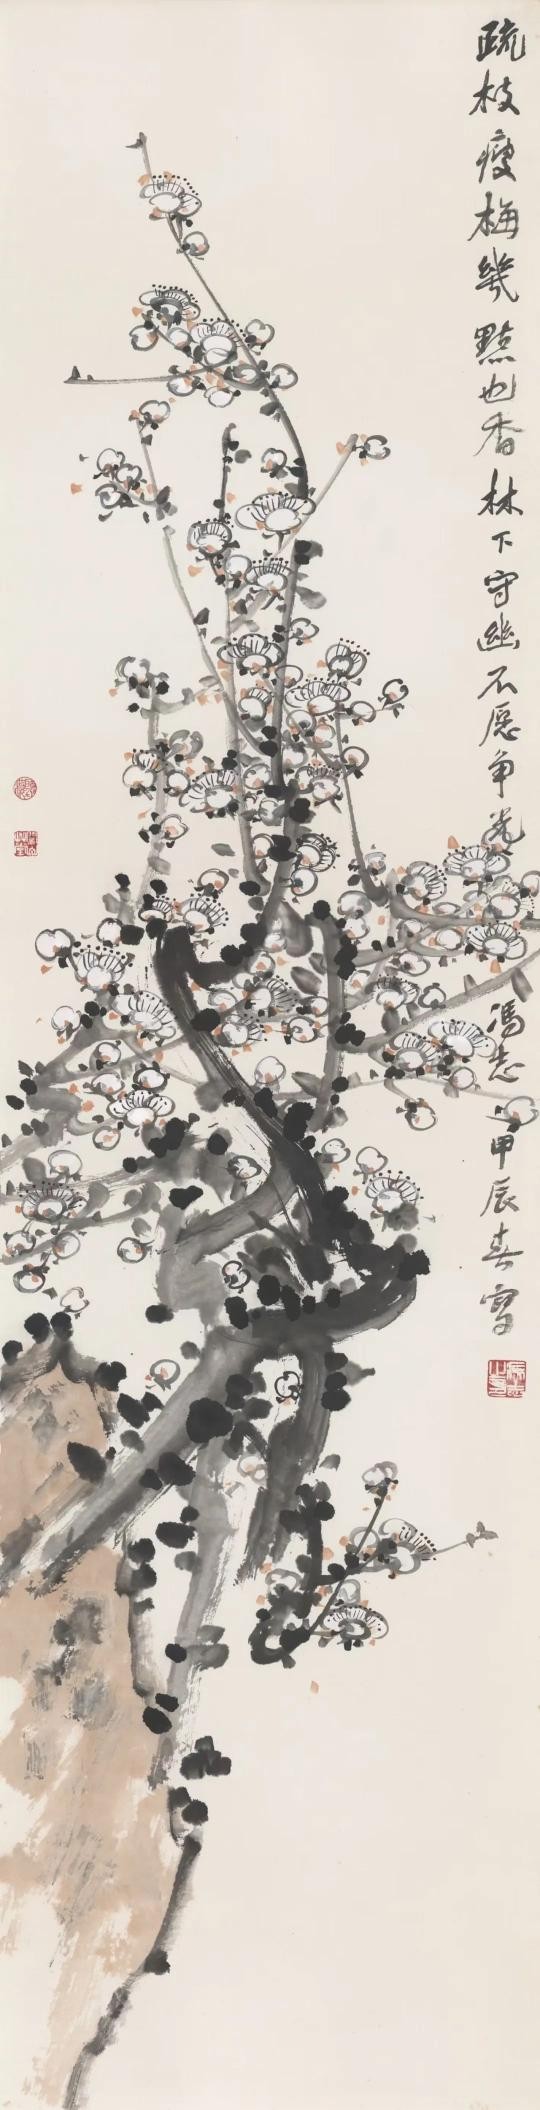 疏枝瘦梅幾點也香林下守幽不愿争光
馮志甲辰春寫